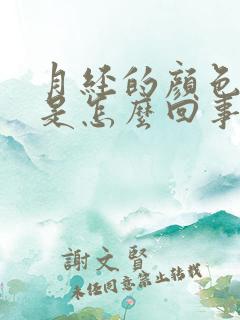 月経的顔色
是怎麼回事
謝文賢
未经同意禁止转载